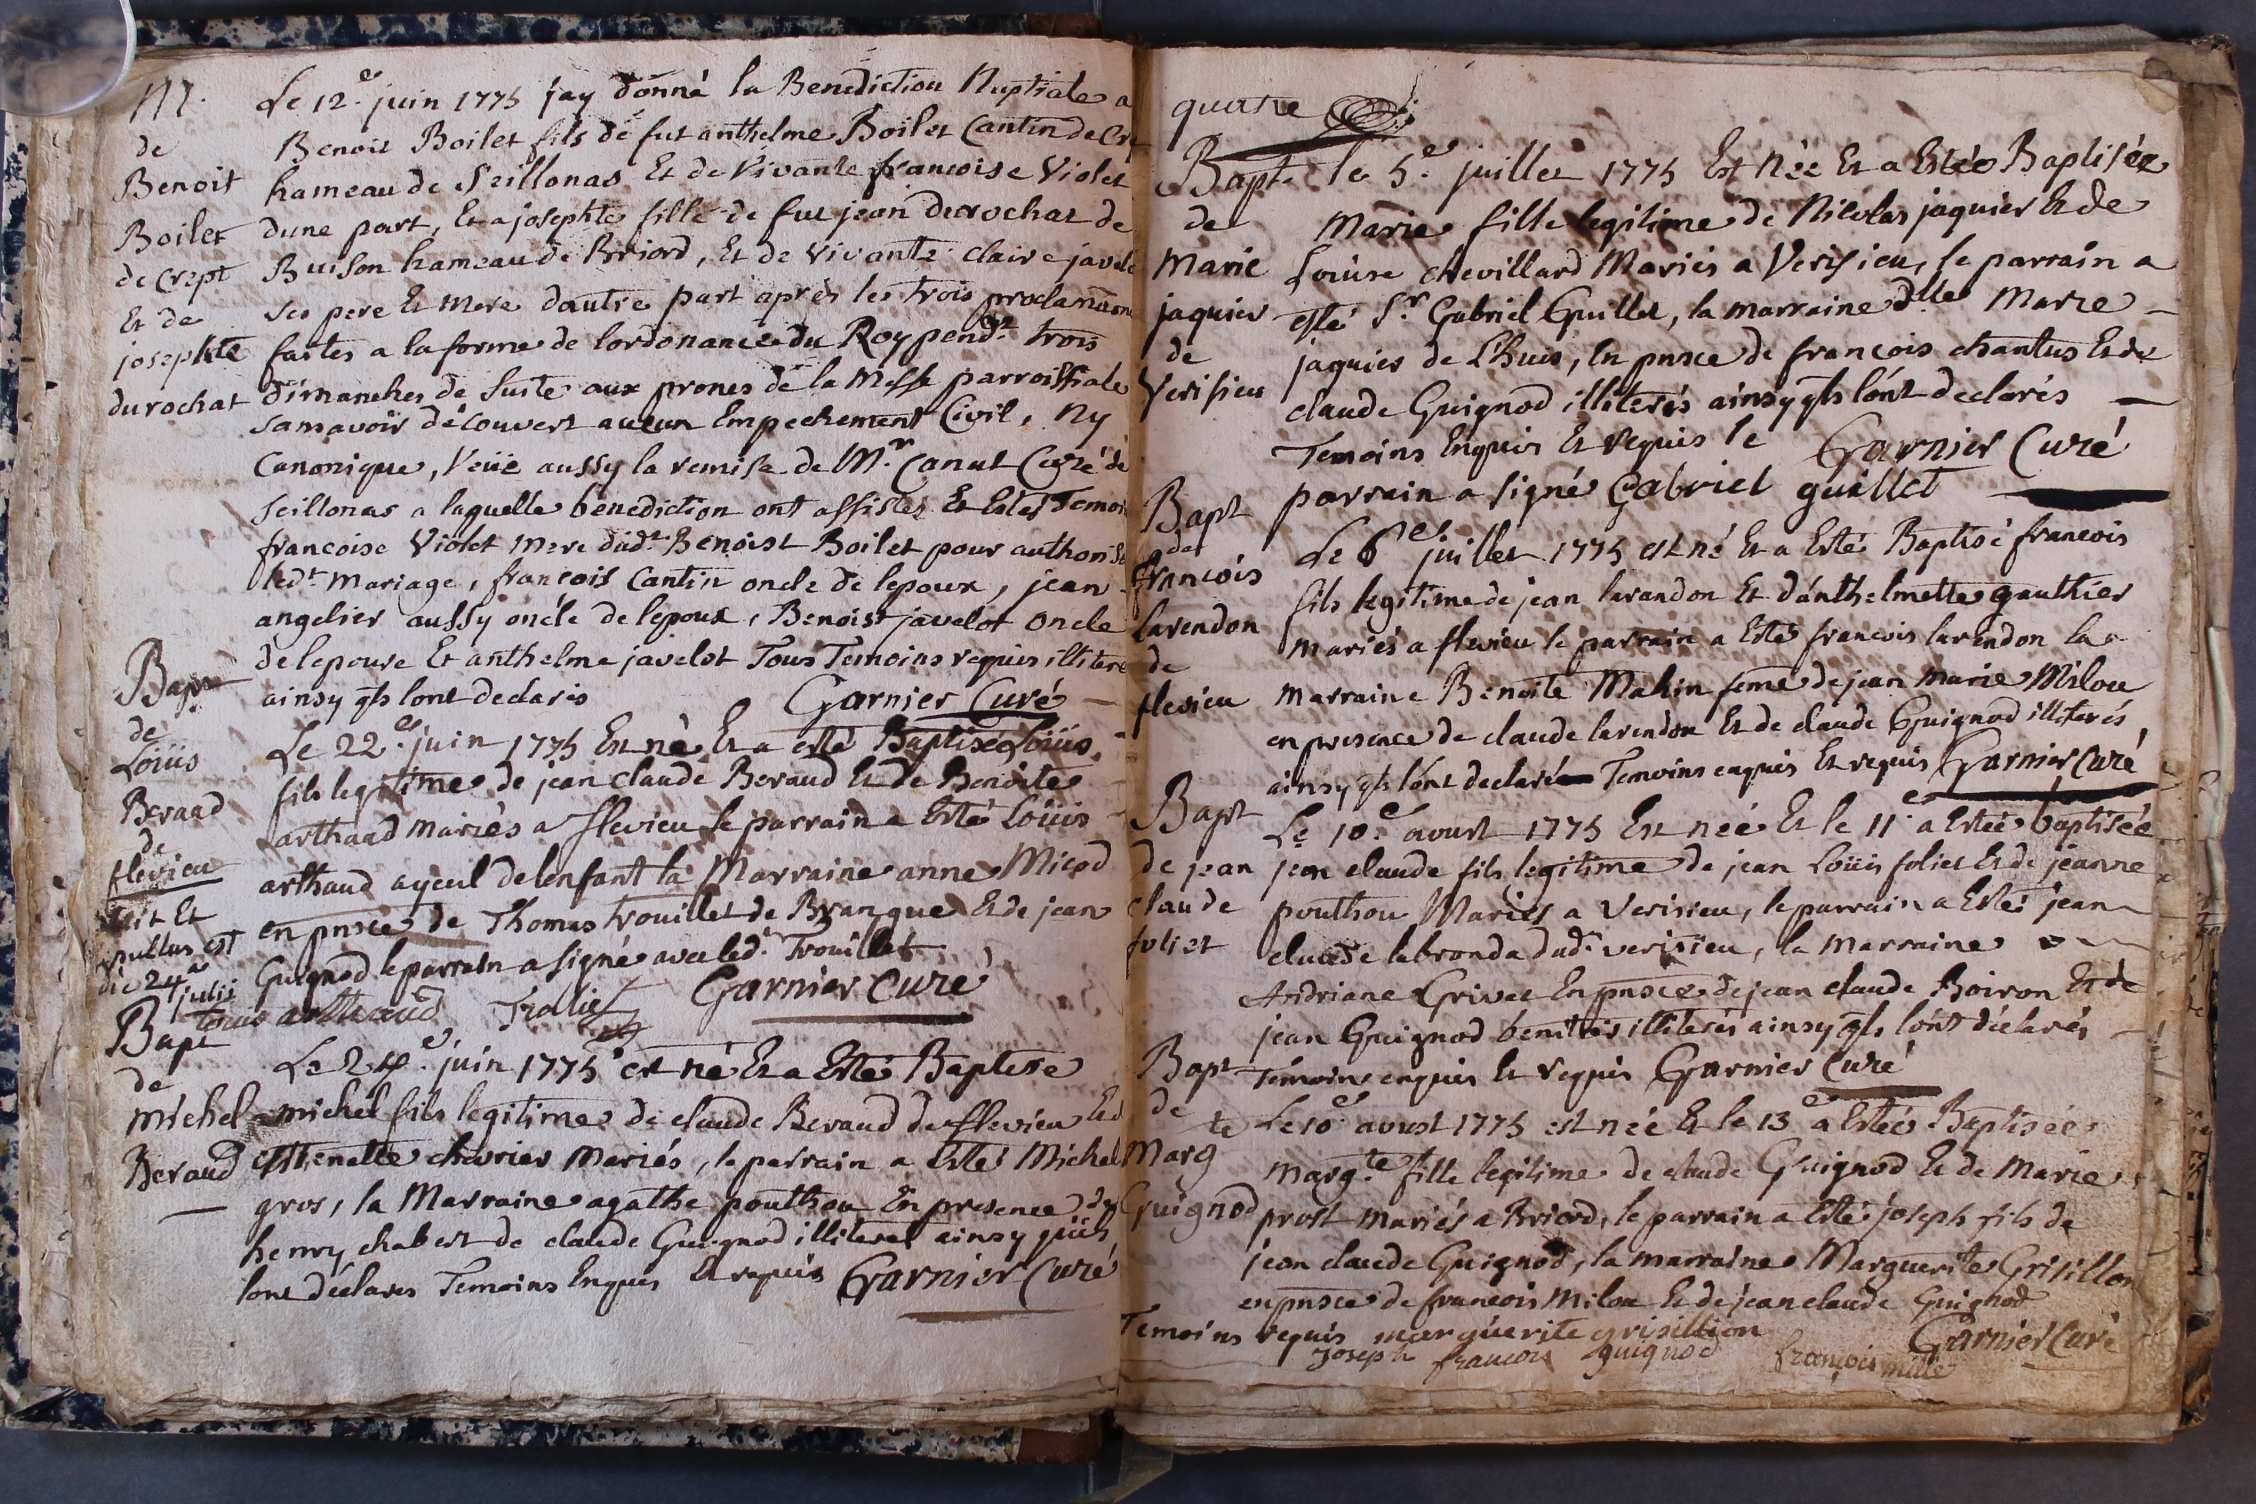 de
Benoit
Boilet
de Crept
Et de
josephte
durochat
Le 12.e juin 1775 jay donné la Benediction Nuptiale a
Benoit Boilet fils de fut anthelme Boilet Cantin de
hameau de Seillonas Et de Vivante francoise Violet
dune part, Et a josephte fille de fut jean durochat de
Buison hameau de Briord, Et de Vivante claire
ses pere Et Mere dautre part après les trois
faites a la forme de lordonance du Roy pend.nt trois
dimanches de Suite aux prones de la Messe parroissiale
sans avoir découvert aucun Empechement Civil, Ny
Canonique, Veüe aussy la remise de Mr. Canut Curé de
Seillonas a laquelle benediction ont assistes Et Estes
francoise Violet mere dud.t Benoist Boilet pour
led.t Mariage, francois Cantin oncle de lepoux, jean
angelier aussy oncle de lepoux, Benoist javelot oncle
de lepouse Et anthelme javelot Tous Temoins requis
ainsy qls lont declarés Garnier Curé
Bapt
de
Loüis
Beraud
de
flevieu
Le 22.e juin 1775 Est né Et a esté Baptisé Loüis
fils legitime de jean claude Beraud Et de Benoite
arthaud mariés a flevieu le parrain a Esté Loüis
arthaud ayeul de lenfant la Marraine anne Micod
en pnsce de Thomas trouillet de Brangue Et de jean
Guignod le parrain a signé avec led.t Trouillet
Garnier Curé
est
die 24a
julii
Louis artheaud
Bapt
de
michel
Beraud
Le 24.e juin 1775 est né Et a Esté Baptise
michel fils legitime de claude Beraud de flevieu
chevrier Mariés, le parrain a Esté Michel
gros, la Marraine agathe pouthon En presence de
henry chabert de claude Guignod illiteres ainsy
lont déclares Temoins Enquis Et requis Garnier Curé
quatre
Bapt
de
Marie
jaquier
de
Verisieu
le 5.e juillet 1775 Est Née Et a Estée Baptisée
Marie fille legitime de Nicolas jaquier Et de
Loüise chevillard Mariés a Verisieu, le parrain a
esté Sr. Gabriel Guillet, la marraine dlle Marie
jaquier de Lhuis, En pnsce de francois chantus Et de
claude Guignod illiterés ainsy qls lont declarés
Temoins Enquis Et requis le Garnier Curé
parrain a signé Gabriel guillet
Bapt
de
francois
larendon
de
flevieu
Le 6e juillet 1775 est né Et a Esté Baptisé francois
fils legitime de jean larandon Et danthelmette gauthier
mariés a flevieu le parrain a Esté francois larendon la
marraine Benoite Mahin feme de jean marie Milou
en presence de claude larendon Et de claude Guignod illiterés
ainsy qls lont declaré Temoins enquis Et requis Garnier Curé
Bapt
de jean
claude
foliet
Le 10.e avoust 1775 Est née Et le 11e a Estée baptisée
jean claude fils legitime de jean Loüis foliet Et de jeanne
pouthou Mariés a Verisieu, le parrain a Esté jean
claude labronda dud.t verisieu, la Marraine
Andriane Grivet En pnsce de jean claude Boiron Et de
jean Guignod illiterés ainsy qls lont déclarés
Temoins enquis Et requis Garnier Curé
Bapt
de
Margte
Guignod
Le 10e avoust 1775 est née Et le 13e a Estée Baptisée
Marg.te fille legitime de claude Guignod Et de Marie
prost mariés a Briord, le parrain a Esté joseph fils de
jean claude Guignod, la marraine Marguerite Grisillon
en pnsce de francois Milou Et de jean claude Guignod
Temoins requis marguerite grisillion Garnier Curé
Joseph francois guignod françois